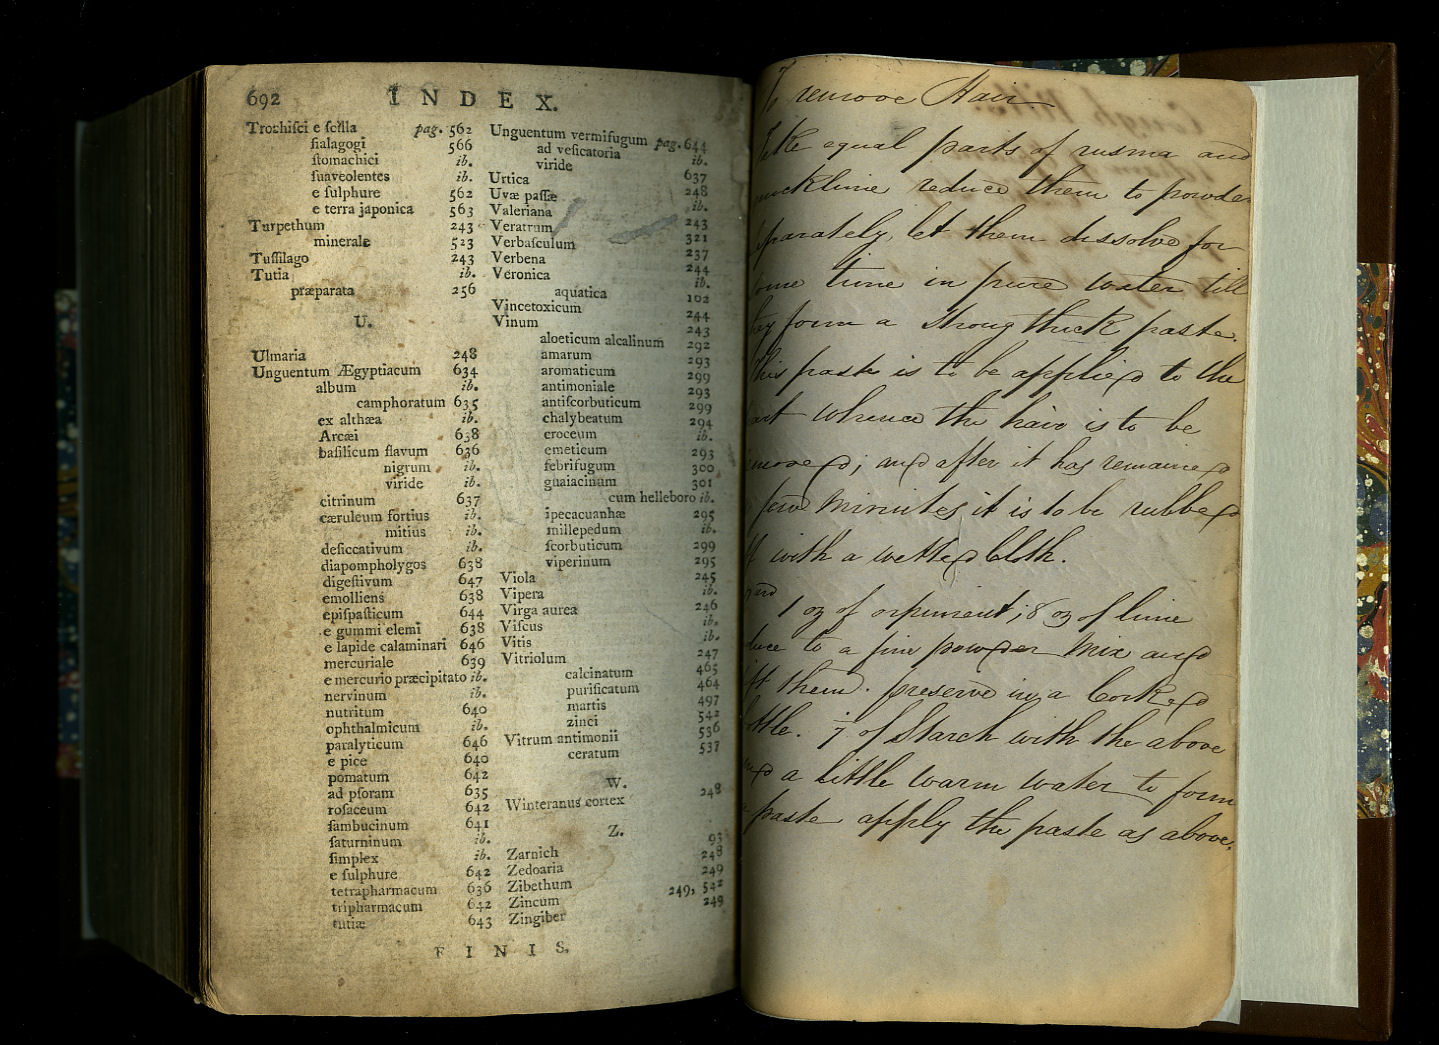 692 INDEX.
Trochiſci e ſcilla pag. 562
ſialagogi 566
ſtomachici ib.
ſuaveolentes ib.
e ſulphure 562
e terra japonica 563
Turpethum 243
minerale 523
Tuſſilago 243
Tutia ib.
præparata 256
U.
Ulmaria 248
Unguentum Ægyptiacum 634
album ib.
camphoratum 635
ex althæa ib.
Arcæi 638
baſilicum flavum 636
nigrum ib.
viride ib.
citrinum 637
cæruleum fortius ib.
mitius ib.
deſiccativum ib.
diapompholygos 638
digeſtivum 647
emolliens 638
epiſpaſticum 644
e gummi elemi 638
e lapide calaminari 646
mercuriale 639
e mercurio præcipitato ib.
nervinum ib.
nutritum 640
ophthalmicum ib.
paralyticum 646
e pice 640
pomatum 642
ad pſoram 635
roſaceum 642
ſambucinum 641
ſaturninum ib.
ſimplex ib.
e ſulphure 642
tetrapharmacum 636
tripharmacum 642
tutiæ 643
Unguentum vermifugum pag. 644
ad veſicatoria ib.
viride 637
Urtica 248
Uvæ paſſæ ib.
Valeriana 243
Veratrum 321
Verbaſculum 237
Verbena 244
Veronica ib.
aquatica 102
Vincetoxicum 244
Vinum 243
aloeticum alcalinum 292
amarum 293
aromaticum 299
antimoniale 293
antiſcorbuticum 299
chalybeatum 294
croceum ib.
emeticum 293
febrifugum 300
guaiacinum 301
cum helleboro ib.
ipecacuanhæ 295
millepedum ib.
ſcorbuticum 299
viperinum 295
Viola 245
Vipera ib.
Virga aurea 246
Viſcus ib.
Vitis ib.
Vitriolum 247
calcinatum 465
purificatum 464
martis 497
zinci 542
Vitrum antimonii 536
ceratum 537
W.
Winteranus cortex 248
Z.
Zarnich 93
Zedoaria 248
Zibethum 249
Zincum 249, 542
Zingiber 249
FINIS.
To remove Hair
Take equal parts of rusma and
quicklime reduce them to powder
separately, let them dissolve for
some time in pure water till
they form a strong thick paste.
This paste is to be applied to the
part whence the hair is to be
removed; and after it has remained
a few minutes it is to be rubbed
off with a wetted Cloth.
1 oz of orpiment; 8 oz of lime
duce to a fine powder mix and
sift them. preserve in a Corked
bottle. of Starch with the above
and a little warm water to form
a paste apply the paste as above.